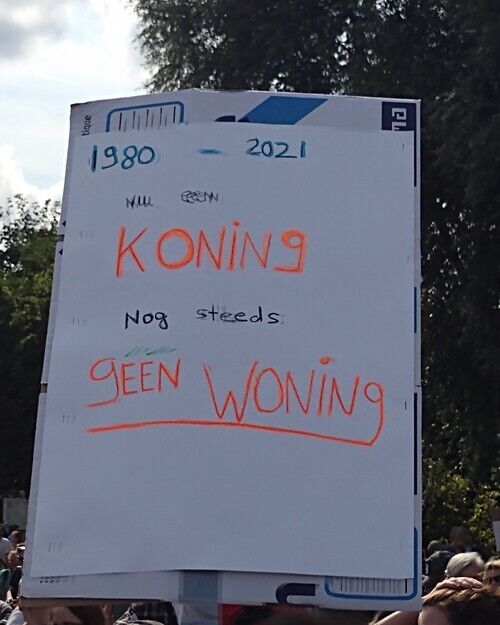 tique
1980 - 2021
Nu een
KONiNg
Nog steeds
gEEN WONiNg